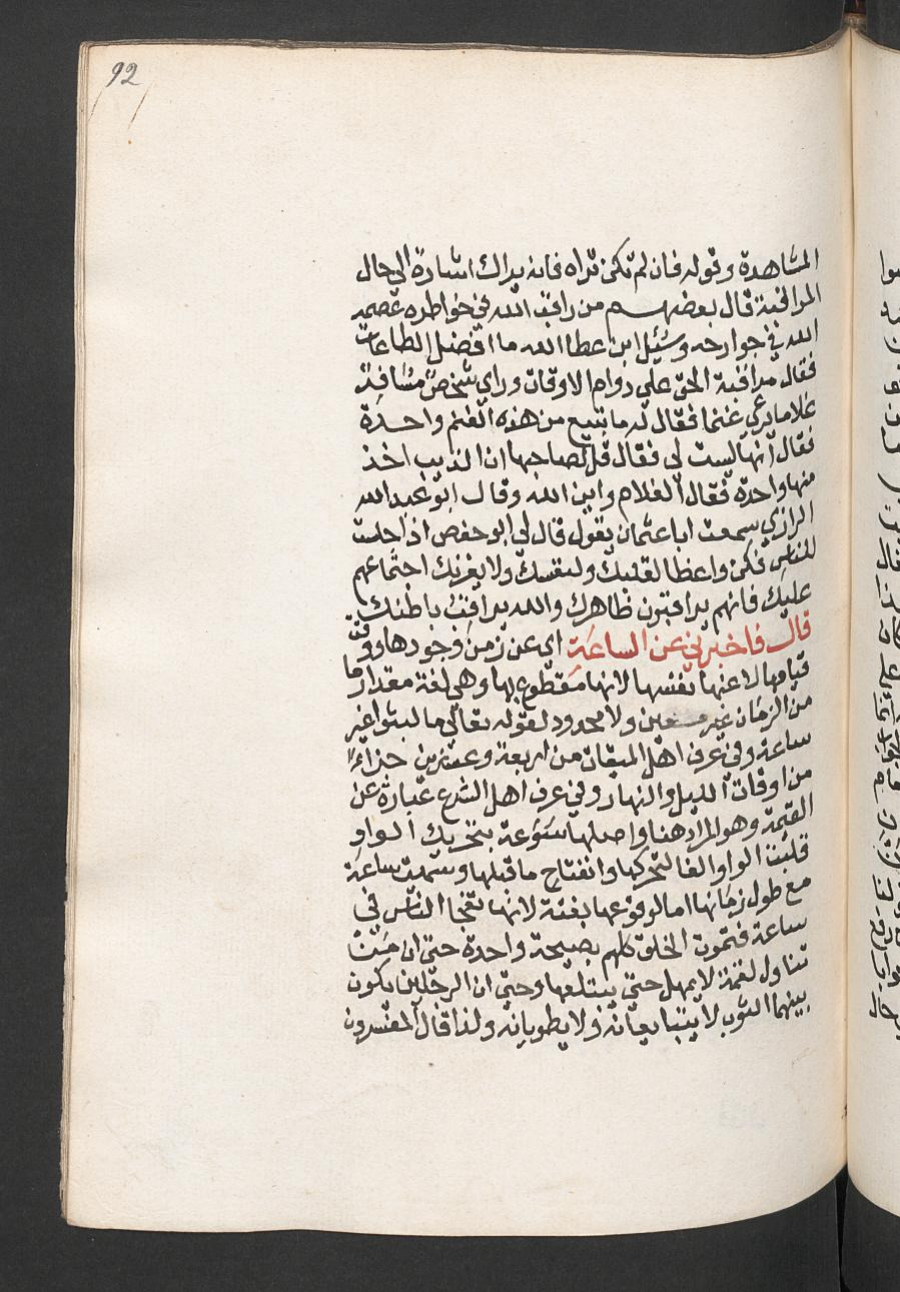 92
المشاهدة وقوله فان لم تكن تراه فانه يراك اشارة الى حال
المراقبة قال بعضهم من راقب الله في خواطره عصمه
الله في جوارحه وسئيل ابن عطا الله ما افضل الطاعات
فقال مراقبة الحق على دوام الاوقات وراي شخص مسافر
غلاما يرعي غنما فقال له ما تبيع من هذه الغنم واحدة
فقال انها ليست لي فقال قل لصاحبها ان الذيب اخذ
منها واحدة فقال الغلام واين الله وقال ابو عبد الله
الرازي سمعت ابا عثمان يقول قال لي ابو حفص اذا جلست
للناس فكن واعظا لقلبك ولنفسك ولا يغرنك اجتماعهم
عليك فانهم يراقبون ظاهرك والله يراقب باطنك
قال فاخبرني عن الساعة اي عن زمن وجودها ووقت
قيامها لا عنها نفسها لانها مقطوع بها وهي لغة مقدار ما
من الزمان غير معين ولا محدود لقوله تعالي ما لبثوا غير
ساعة وفي عرف اهل الميقات من اربعة وعشرين جزاء
من اوقات الليل والنهار وفي عرف اهل الشرع عبارة عن
القيمة وهو المراد هنا واصلها سوعة بتحريك الواو
قلبت الواو الفا لتحركها وانفتاح ما قبلها وسميت ساعة
مع طول زمانها اما لوقوعها بغتة لانها تفجا الناس في
ساعة فتموت الخلق كلهم بصيحة واحدة حتى ان من
تناول لقمة لا يمهل حتى يبتلعها وحتى ان الرجلين يكون
بينهما الثوب لا يتبايعانه ولا يطويانه ولذا قال المفسرون